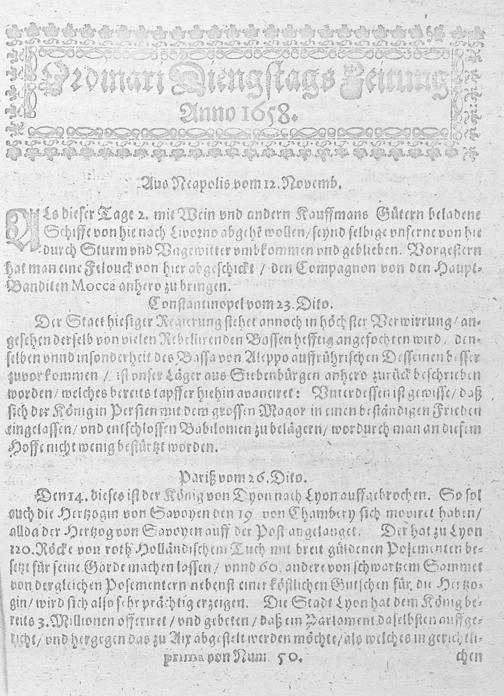 Ordinari Diengstags Zeitung
Anno 1658.
Aus Neapolis vom 12. Novemb.
ALs dieser Tage 2. mit Wein vnd andern Kauffmans Gütern beladene
Schiffe von hie nach Livorno abgehē wollen / seynd selbige vnferne von hie
durch Sturm vnd Vngewitter vmbkommen vnd geblieben. Vorgestern
hat man eine Felouck von hier abgeschickt / den Compagnon von den Haupt-
Banditen Mocca anhero zu bringen.
Constantinopel vom 23. Dito.
Der Staet hiesiger Regierung stehet annoch in höchster Verwirrung / an-
gesehen derselb von vielen Rebellirenden Bassen hefftig angefochten wird / den-
selben vnnd insonderheit des Bassa von Aleppo auffrührischen Desseinen besser
zuvor kommen / ist vnser Läger aus Siebenbürgen anhero zurück beschrieben
worden / welches bereits tapffer hiehin avanciret: Vnterdessen ist gewisse / daß
sich der König in Persien mit dem grossen Magor in einen beständigen Frieden
eingelassen / vnd entschlossen Babilonien zu belägern / wordurch man an diesem
Hoffe nicht wenig bestürtzt worden.
Pariß vom 26. Dito.
Den 14. dieses ist der König von Dyon nach Lyon auffgebrochen. So sol
auch die Hertzogin von Savoyen den 19 von Chambery sich moviret haben /
allda der Hertzog von Savoyen auff der Post angelanget. Der hat zu Lyon
120. Röcke von roth Holländischem Tuch mit breit güldenen Posementen be-
setzt für seine Garde machen lassen / vnnd 60. andere von schwartzem Sammet
von dergleichen Posementern nebenst einer köstlichen Gutschen für die Hertzo-
gin / wird sich also sehr prächtig erzeigen. Die Stadt Lyon hat dem König be-
reits 3. Millionen offeriret / vnd gebeten / daß ein Parlament daselbsten auffge-
richt / vnd hergegen das zu Aix abgestelt werden möchte / als welches in gerichtli-
prima von Num. 50. chen